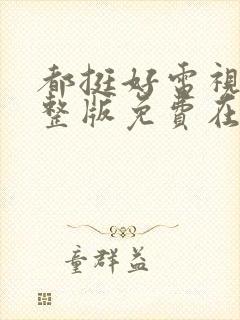 都挺好電視
整版免費在
童群益